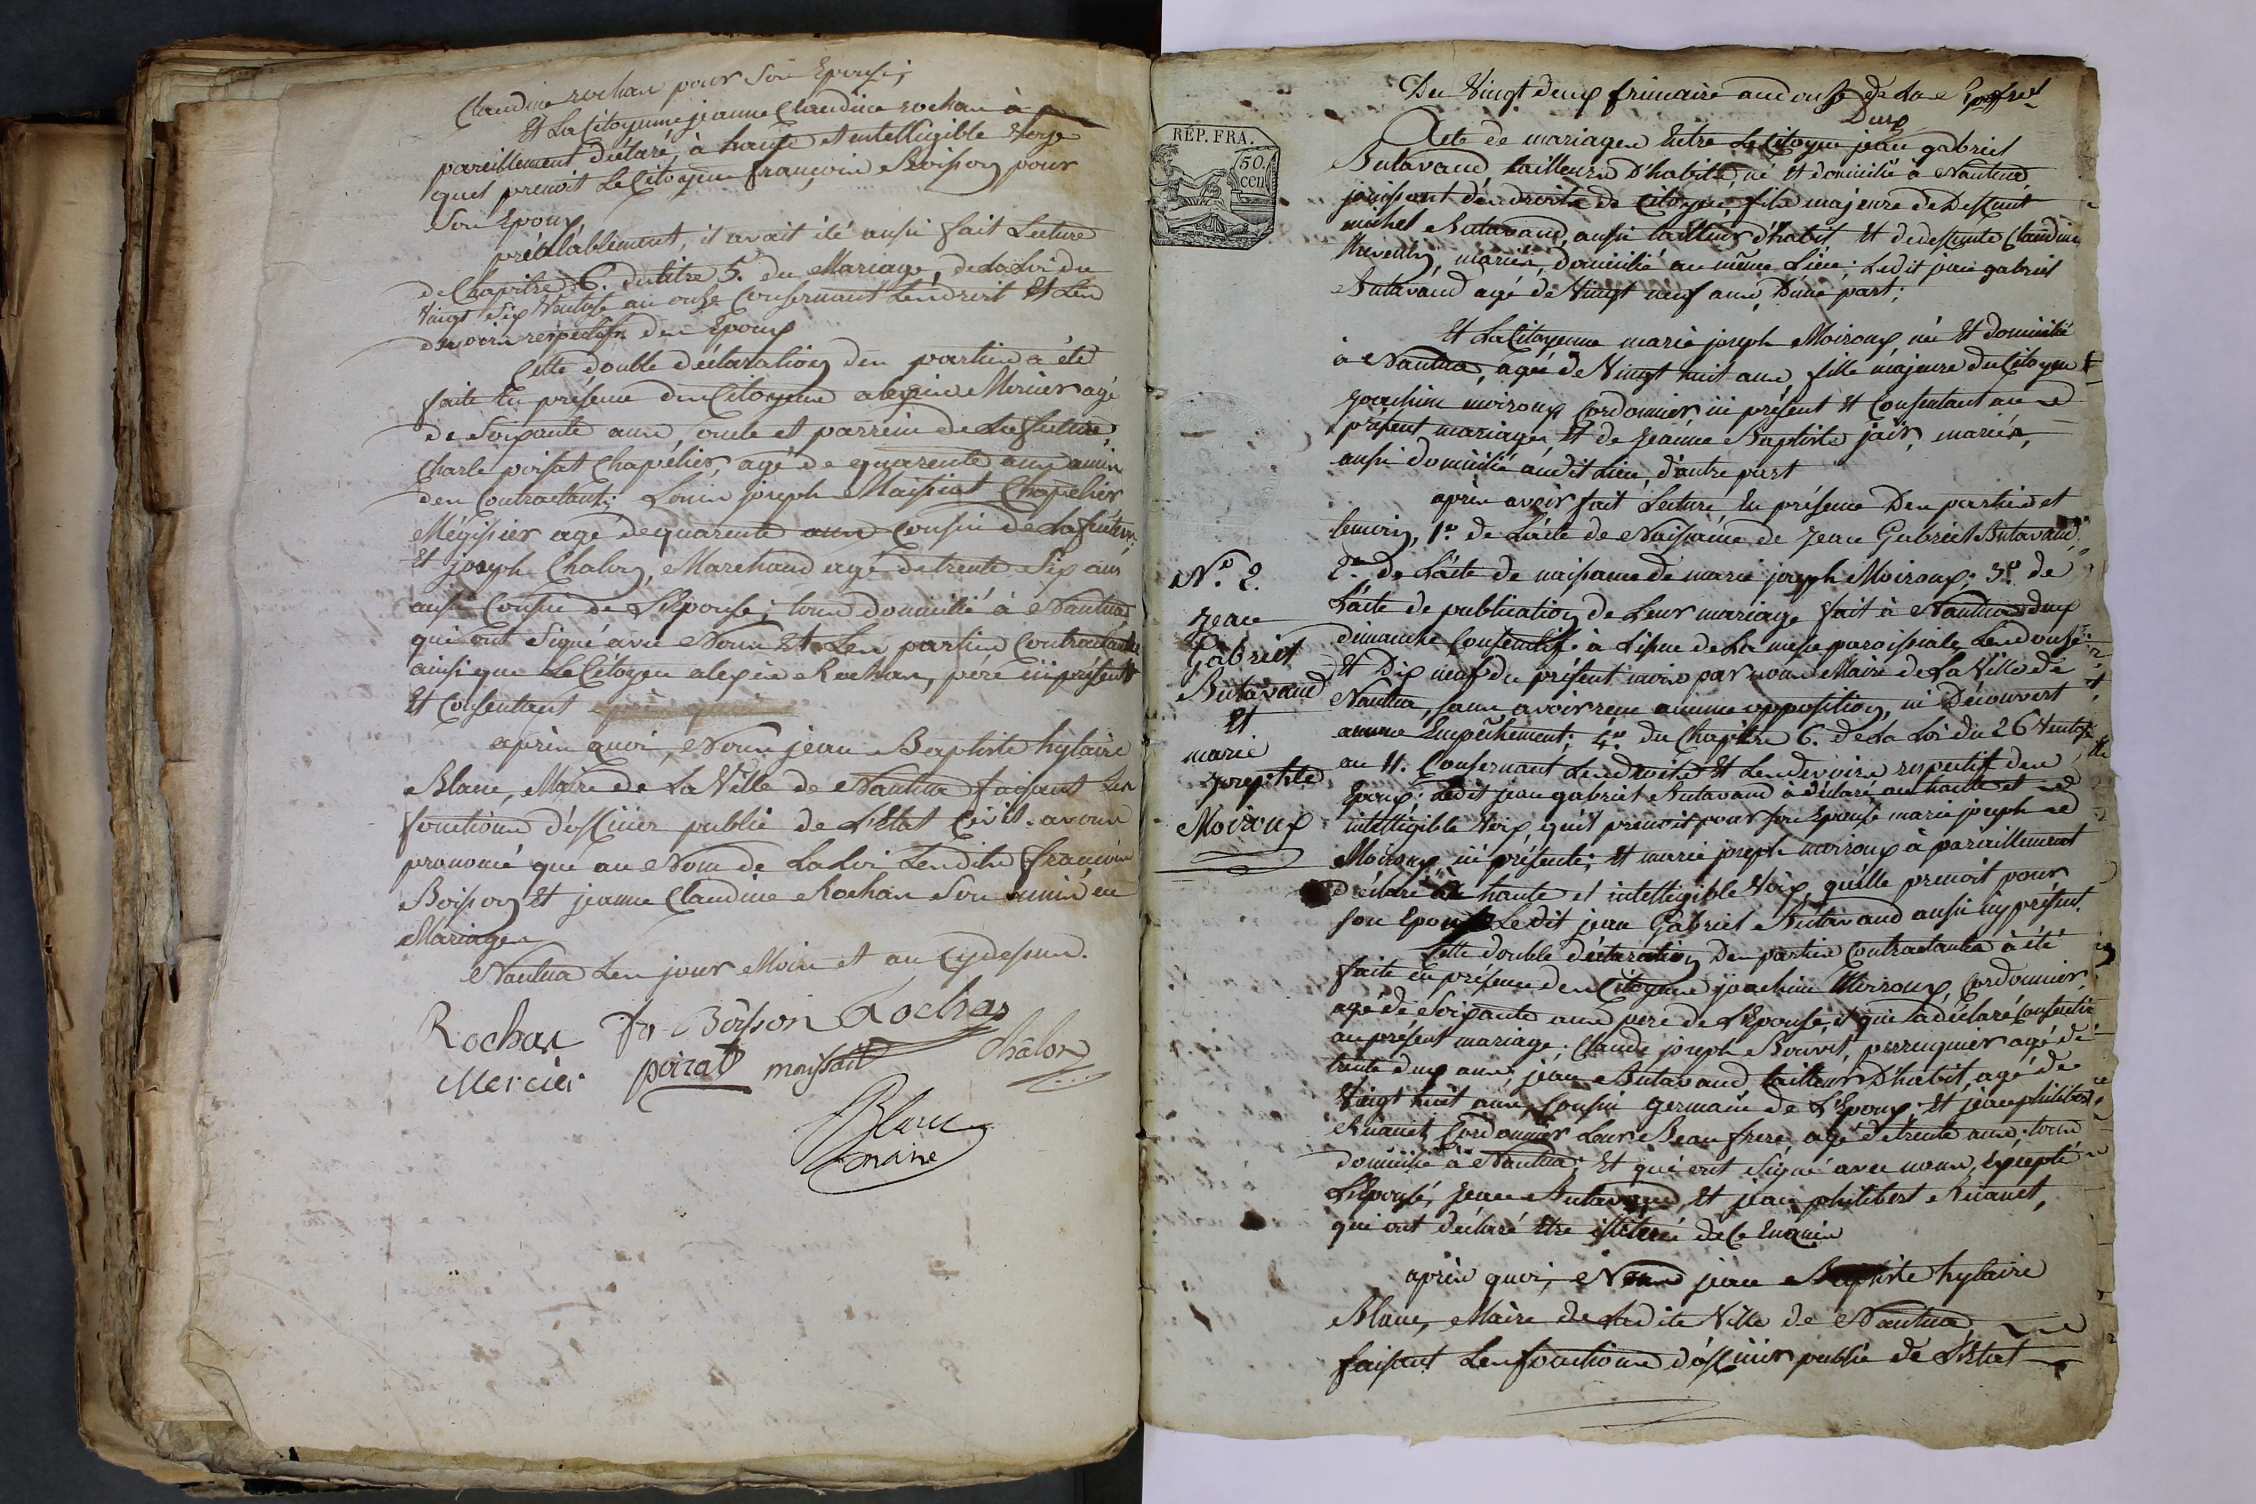 Claudine rochan pour Son Epouse;
Et La Citoyenne jeanne Claudine rochan à
pareillement déclaré, à haute et intelligible Voye
quel prenoit Le Citoyen françois Boisson pour
Son Epoux
préalablement, il avait été aussi fait Lecture
de Chapitre 6. du titre 5. du Mariage, de La Loi du
Vingt Six Ventose an onze Consernant Les droit Et Les
devoirs respectifs des Epoux
Cette double déclaration des parties a été
faite En présence des Citoyens alexis Mercier agé
de Soixante ans, oncle et parrein de La future;
Charle poisat Chapelier, agé de quarente ans amis
des Contractants; Louis joseph Maissiat Chapelier
Mégissier agé de quarente ans Cousin de La future;
Et joseph Chalon, Marchand agé de trente Six ans
aussi Cousin de L'Epouse; tous domicilié à Nantua
qui ont Signé avec Nous Et Les parties Contractantes
ainsi que Le Citoyen alexis Rochan, père ici présent
Et Consentant
après quoi, Nous jean Baptiste hylaire
Blanc, Maire de La Ville de Nantua faisant Les
fonctions d'officier public de L'Etat Civil. avons
prononcé que au Nom de La Loi Lesdits françois
Boisson Et jeanne Claudine Rochan Son unis en
Mariages
Nantua Les jour Mois et an Cydessus.
Rochan fs Boisson Rochas
Mercier poizat maissiat Châlon
Blanc
maire
RÉP. FRA.
50.
cen
Du Vingt deux frimaire an douze de La
Acte de mariages Entre Le Citoyen jean gabriel
Butavand, tailleurs D'habits, né Et domicilié à Nantua
jouissant des droits de Citoyen, fils majeure de Deffunt
michel Butavand, aussi tailleurs d'habit Et de deffunte Claudine
mariés, Domicilié au même Lieu; Ledit jean gabriel
Butavand agé de Vingt neuf ans, D'une part;
Et La Citoyenne marie joseph Moiroux née Et domicilié
à Nantua, agée de Vingt huit ans, fille majeure du Citoyen
joachim moiroux Cordonnier ici présent Et Consentant au
présent mariage, Et de jeanne Baptiste jair, mariés,
aussi domicilié audit Lieu, d'autre part
après avoir fait Lecture, En présence Des parties et
temoins, 1.º de L'acte de Naissance de jean Gabriel Butavand
2.º de L'acte de naissance de marie joseph Moiroux; 3.º de
L'acte de publication de Leur mariage fait à Nantua deux
dimanche Consecutifs à L'issue de La messe paroissiale, Les douze
Et Dix neuf du présent mois par nous Maire de La Ville de
Nantua, sans avoir reçu aucune opposition, ni Découvert
aucune Empêchement; 4.º du Chapitre 6. de La Loi du 26 Ventose
an 11. Consernant Les droits Et Les devoirs respectif des
Epoux; Ledit jean gabriel Butavand à déclaré, au haute et
intelligible Voix, qu'il prenoit pour Son Epouse marie joseph
Moiroux ici présente; Et marie joseph moiroux à pareillement
déclaré à haute et intelligible Voix, qu'elle prenoit pour
son Epoux Ledit jean Gabriel Butavand aussi icy présent.
Cette double déclaration Des parties Contractantes à été
faite En présence des Citoyens joachim Moiroux, Cordonnier,
agé de Soixante ans pere de L'Epouse, et qui a déclaré Consentir
au présent mariage; Claude joseph Bouvet, perruquier agé de
trente deux ans, jean Butavand, tailleurs D'habit, agé de
Vingt huit ans, Cousin germain de L'Epoux, Et jean philibert
Ruanet, Cordonnier Leurs Beau frere agé de trente ans; tous
domicilié à Nantua; Et qui ont Signé avec nous, Excepté
L'Epouse, jean Butavand, Et jean philibert Ruanet,
qui ont déclaré Etre illiteré de Ce Enquis
après quoi, Nous jean Baptiste hylaire
Blanc, Maire de Ladite Ville de Nantua,
faisant Les fonctions d'officier public de L'Etat
N.º 2.
jean
Gabriel
Butavand
Et
marie
josephte
Moiroux